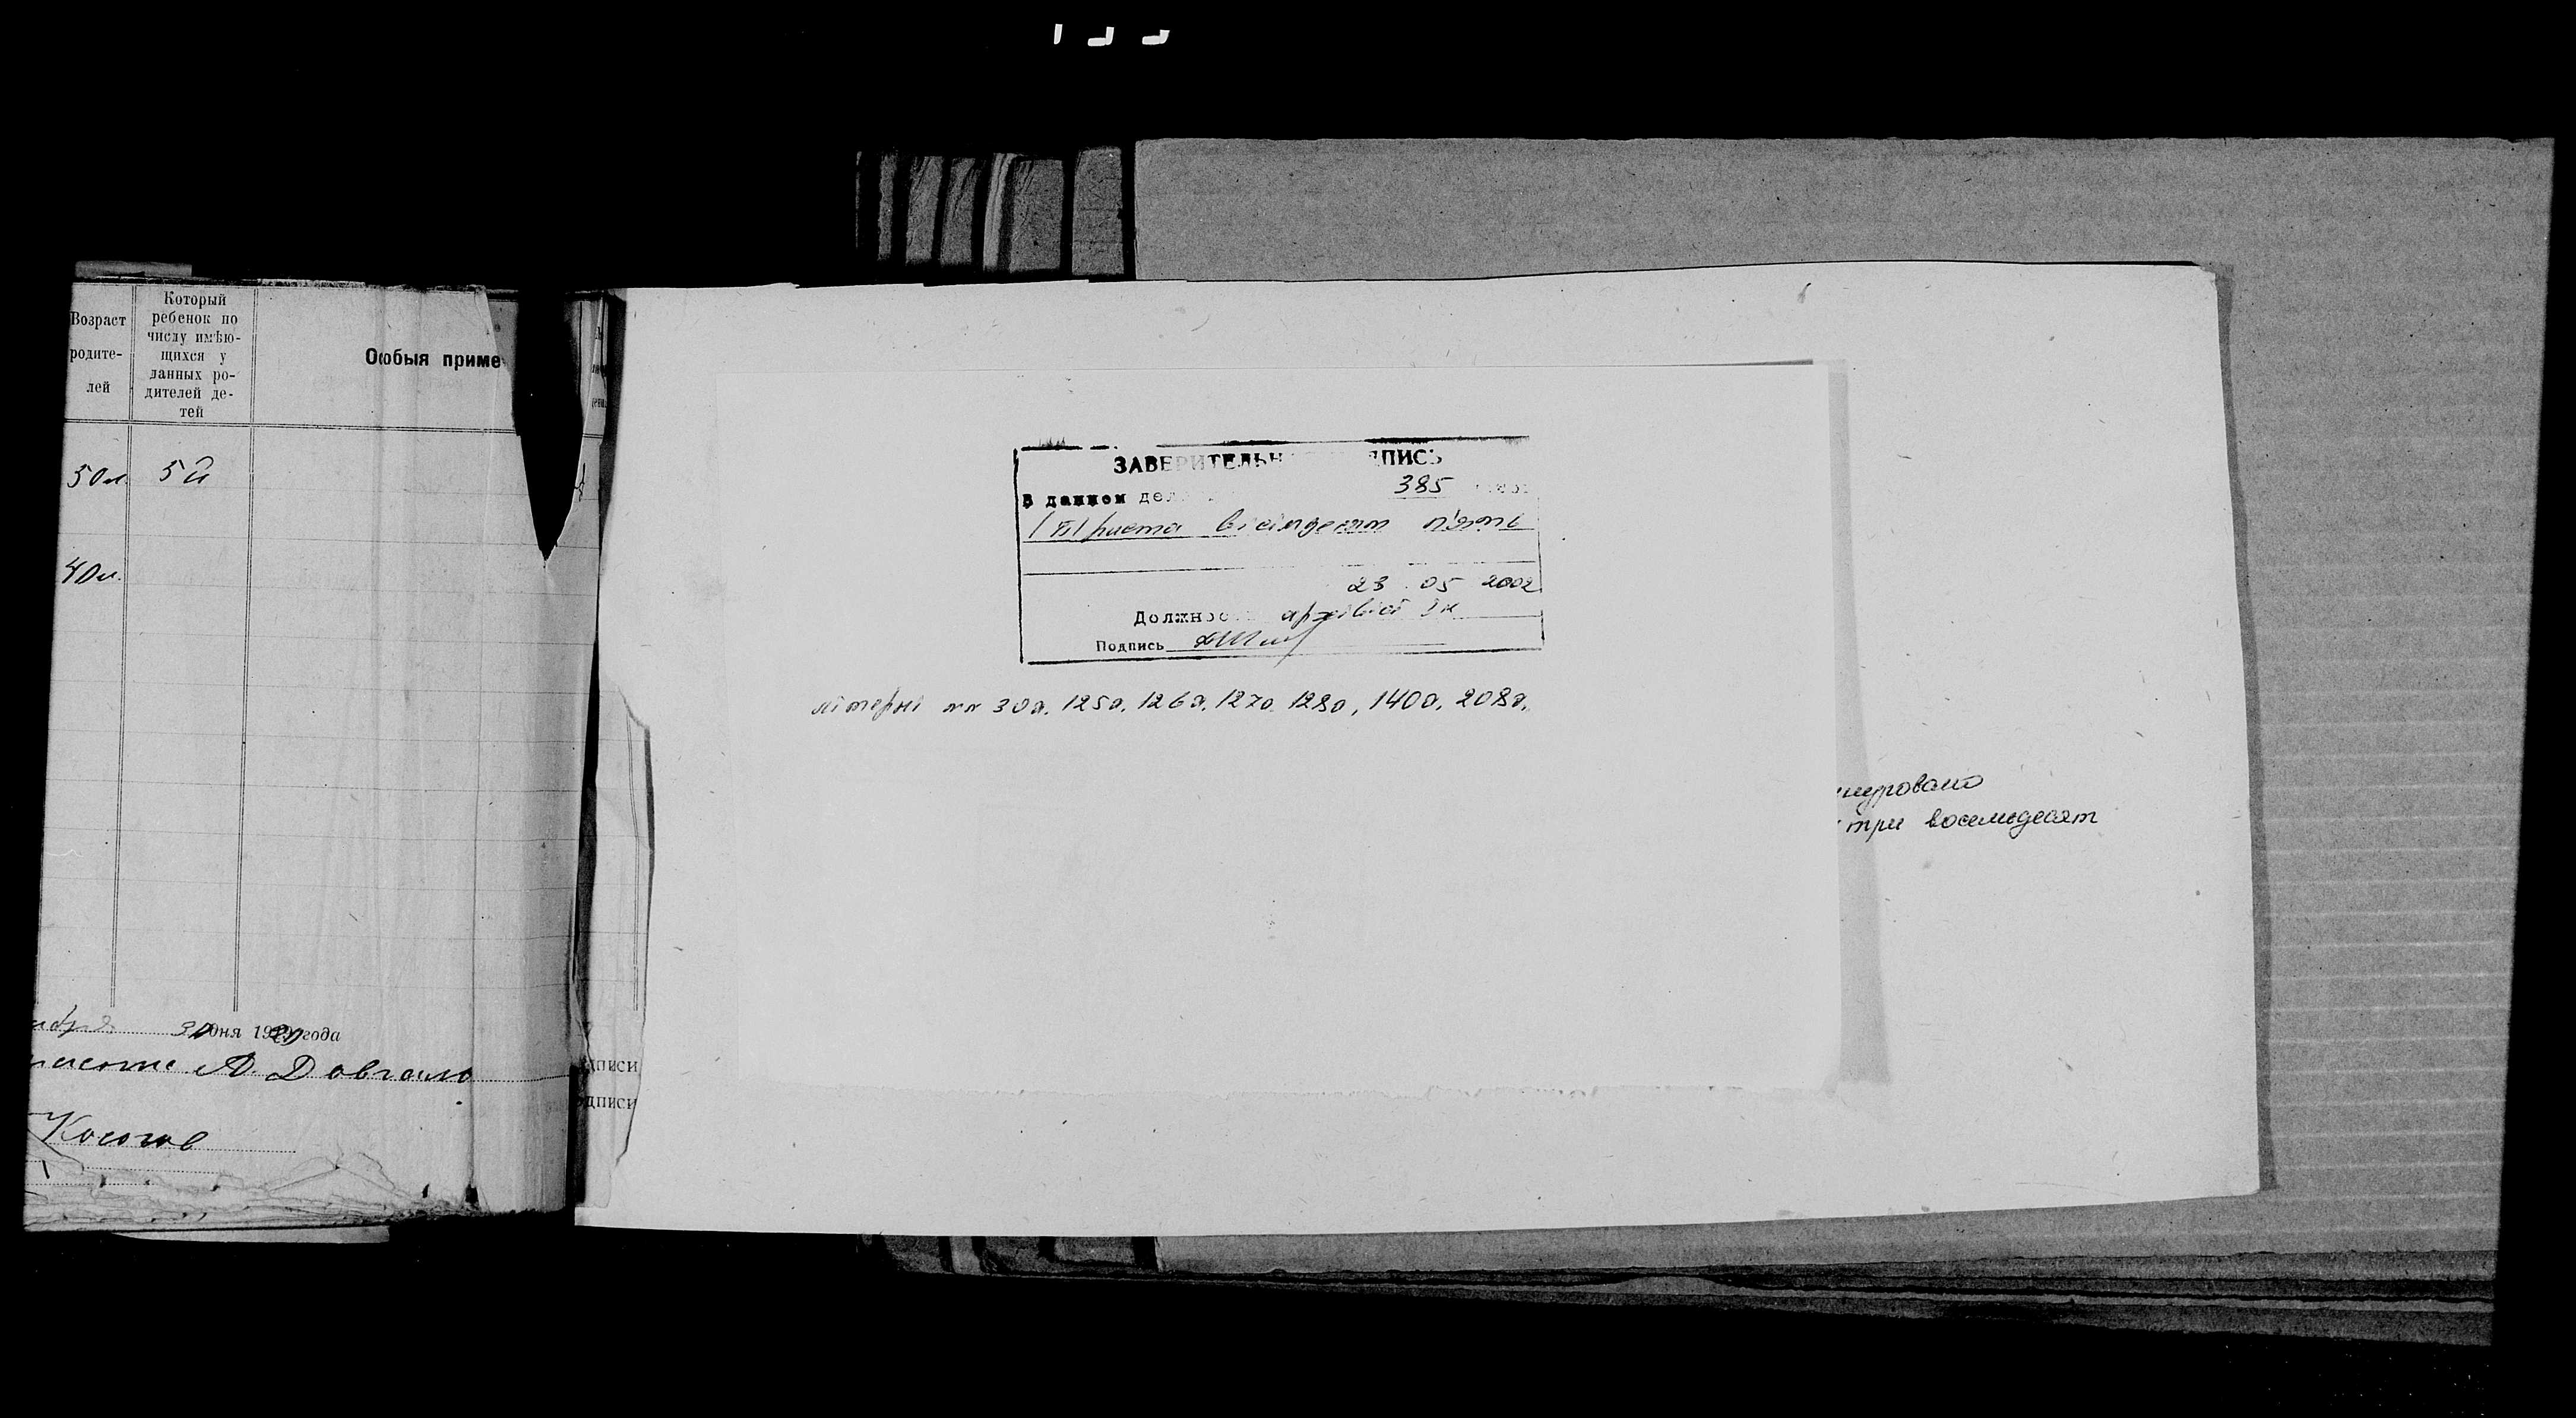 Возраст
родите-
лей
Который
ребенок по
числу имѣю-
щихся у
данных ро-
дителей де-
тей
Особыя приме
30 л. 5й
40 л.
30 дня 1920 года
А. Довгаль
Косогов
дписи
одписи
ЗАВЕРИТЕЛЬН ДПИСЬ
В данном дел 385
(Триста вісімдесят п'ять
23 05 2002
Должнос архівіст Ік
Подпись
літерні 30а, 125а, 126а, 127а, 128а, 140а, 208а.
нуровано
три восемьдесят